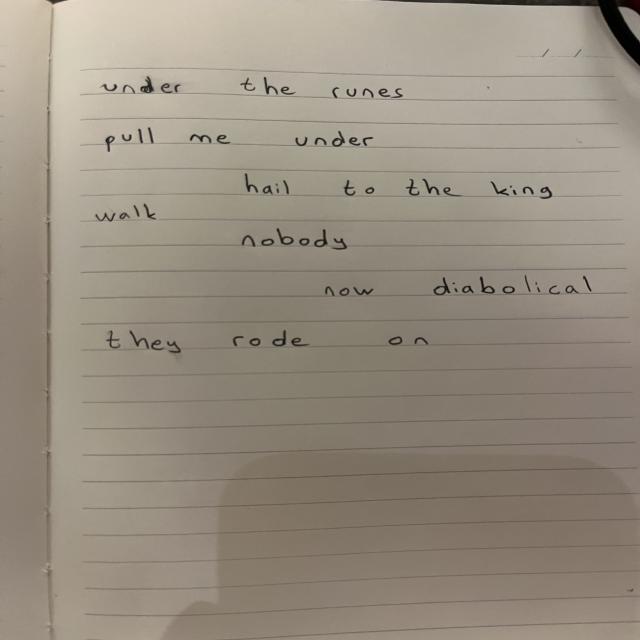 under the runes
pull me under
hail to the king
walk
nobody
now diabolical
they rode on